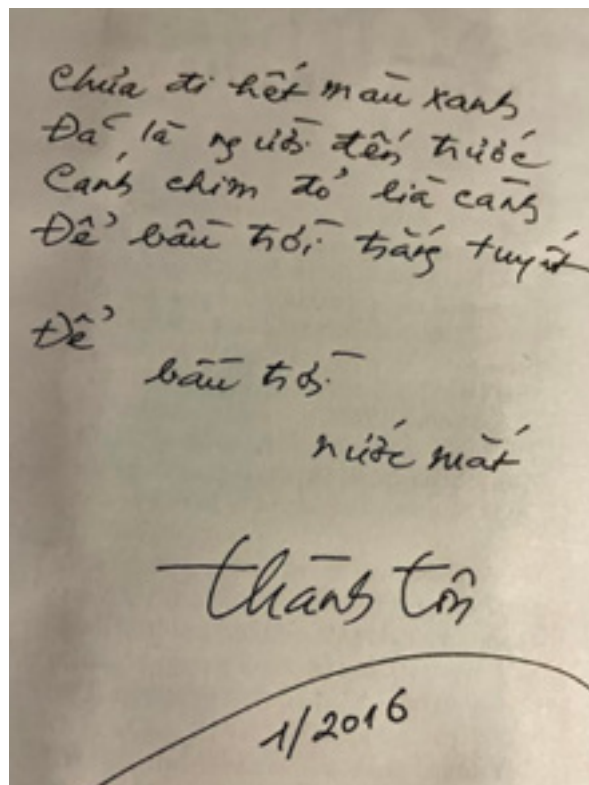 Chưa đi hết màu xanh
Đã là người đến trước
Cánh chim đỏ lìa cành
Để bầu trời trắng tuyết
Để
bầu trời
nước mắt
Thành Tôn
1/2016